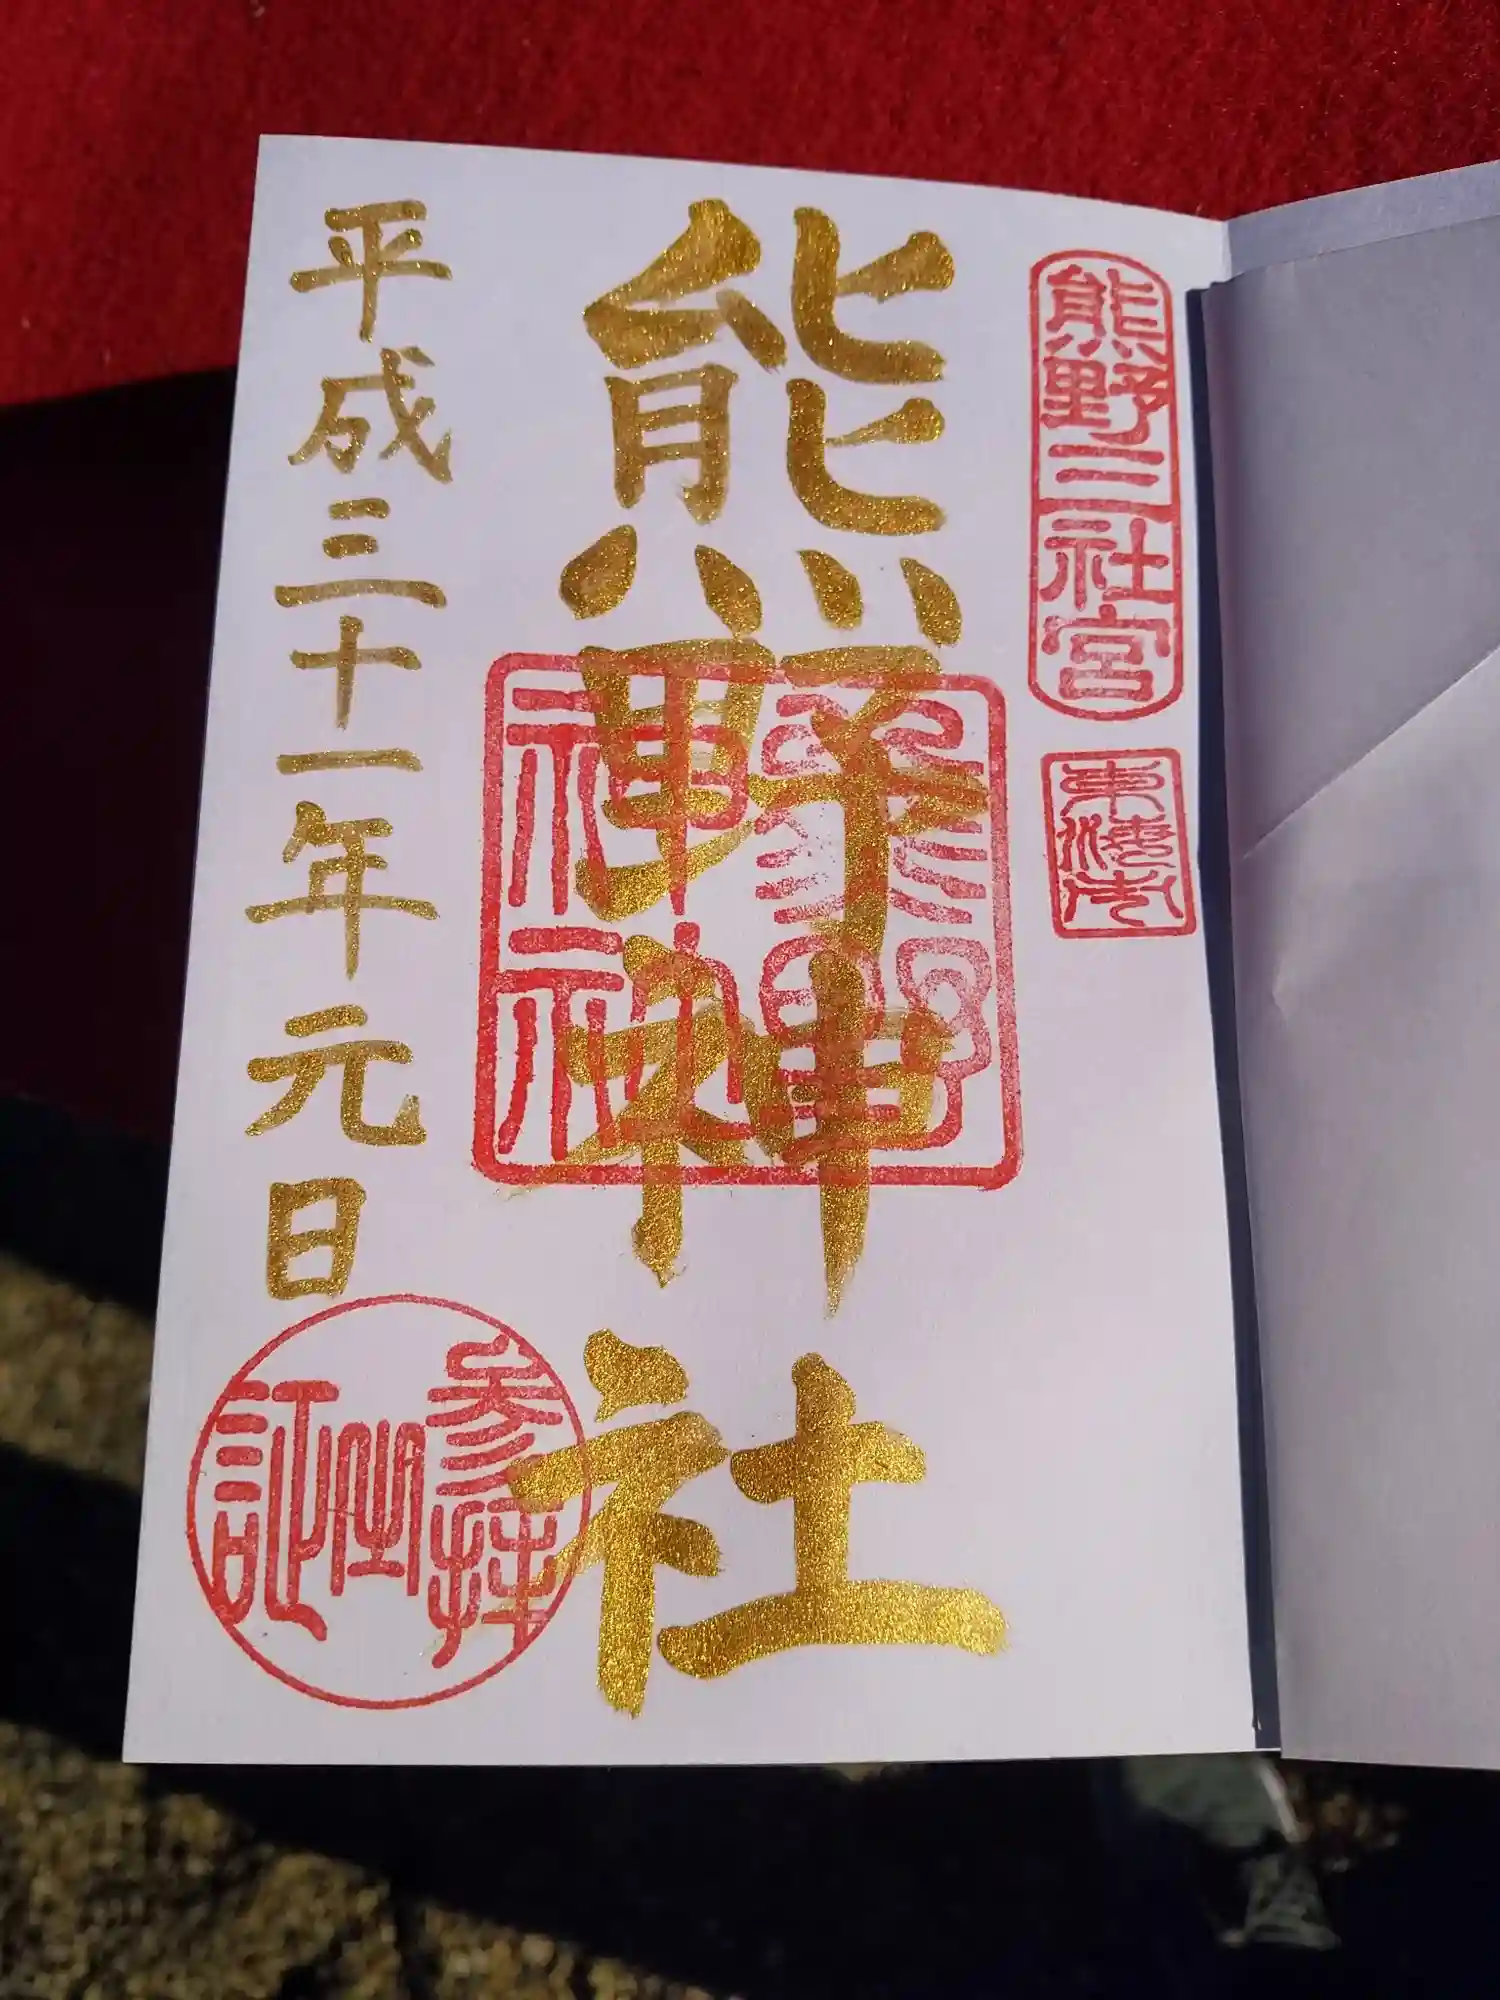 熊野三社宮
東海市
熊野神社
熊野神社
平成三十一年元日
参拝之証